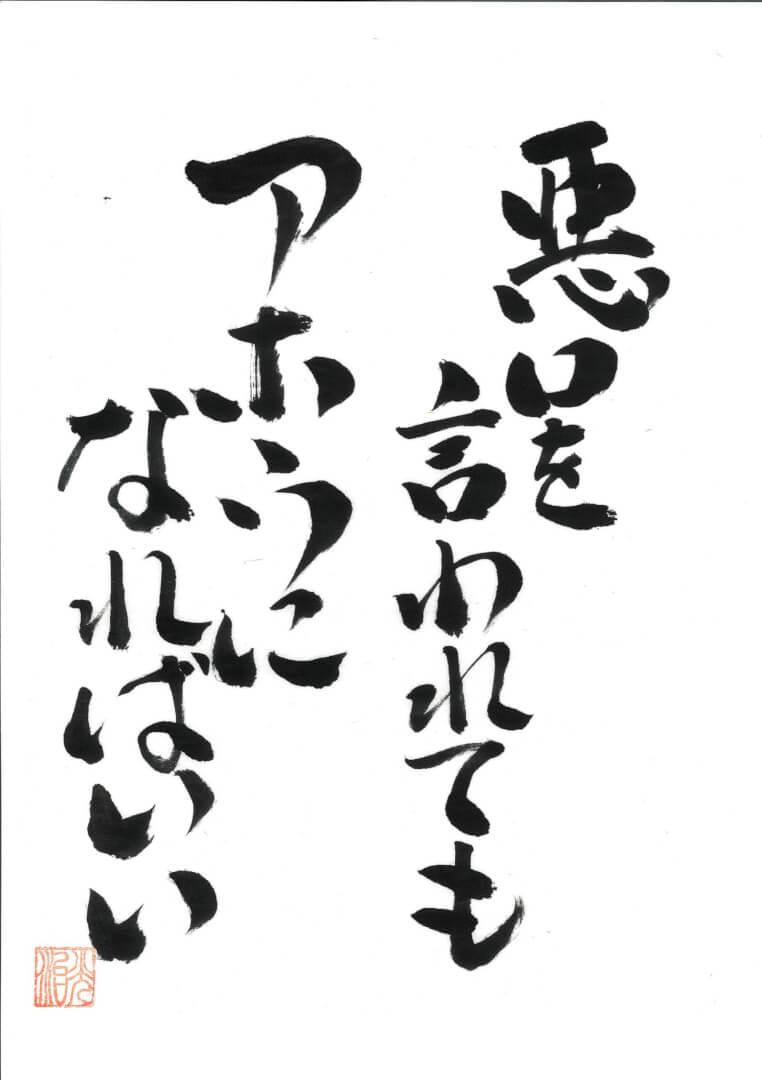 悪口を
言われても
アホうに
なればいい